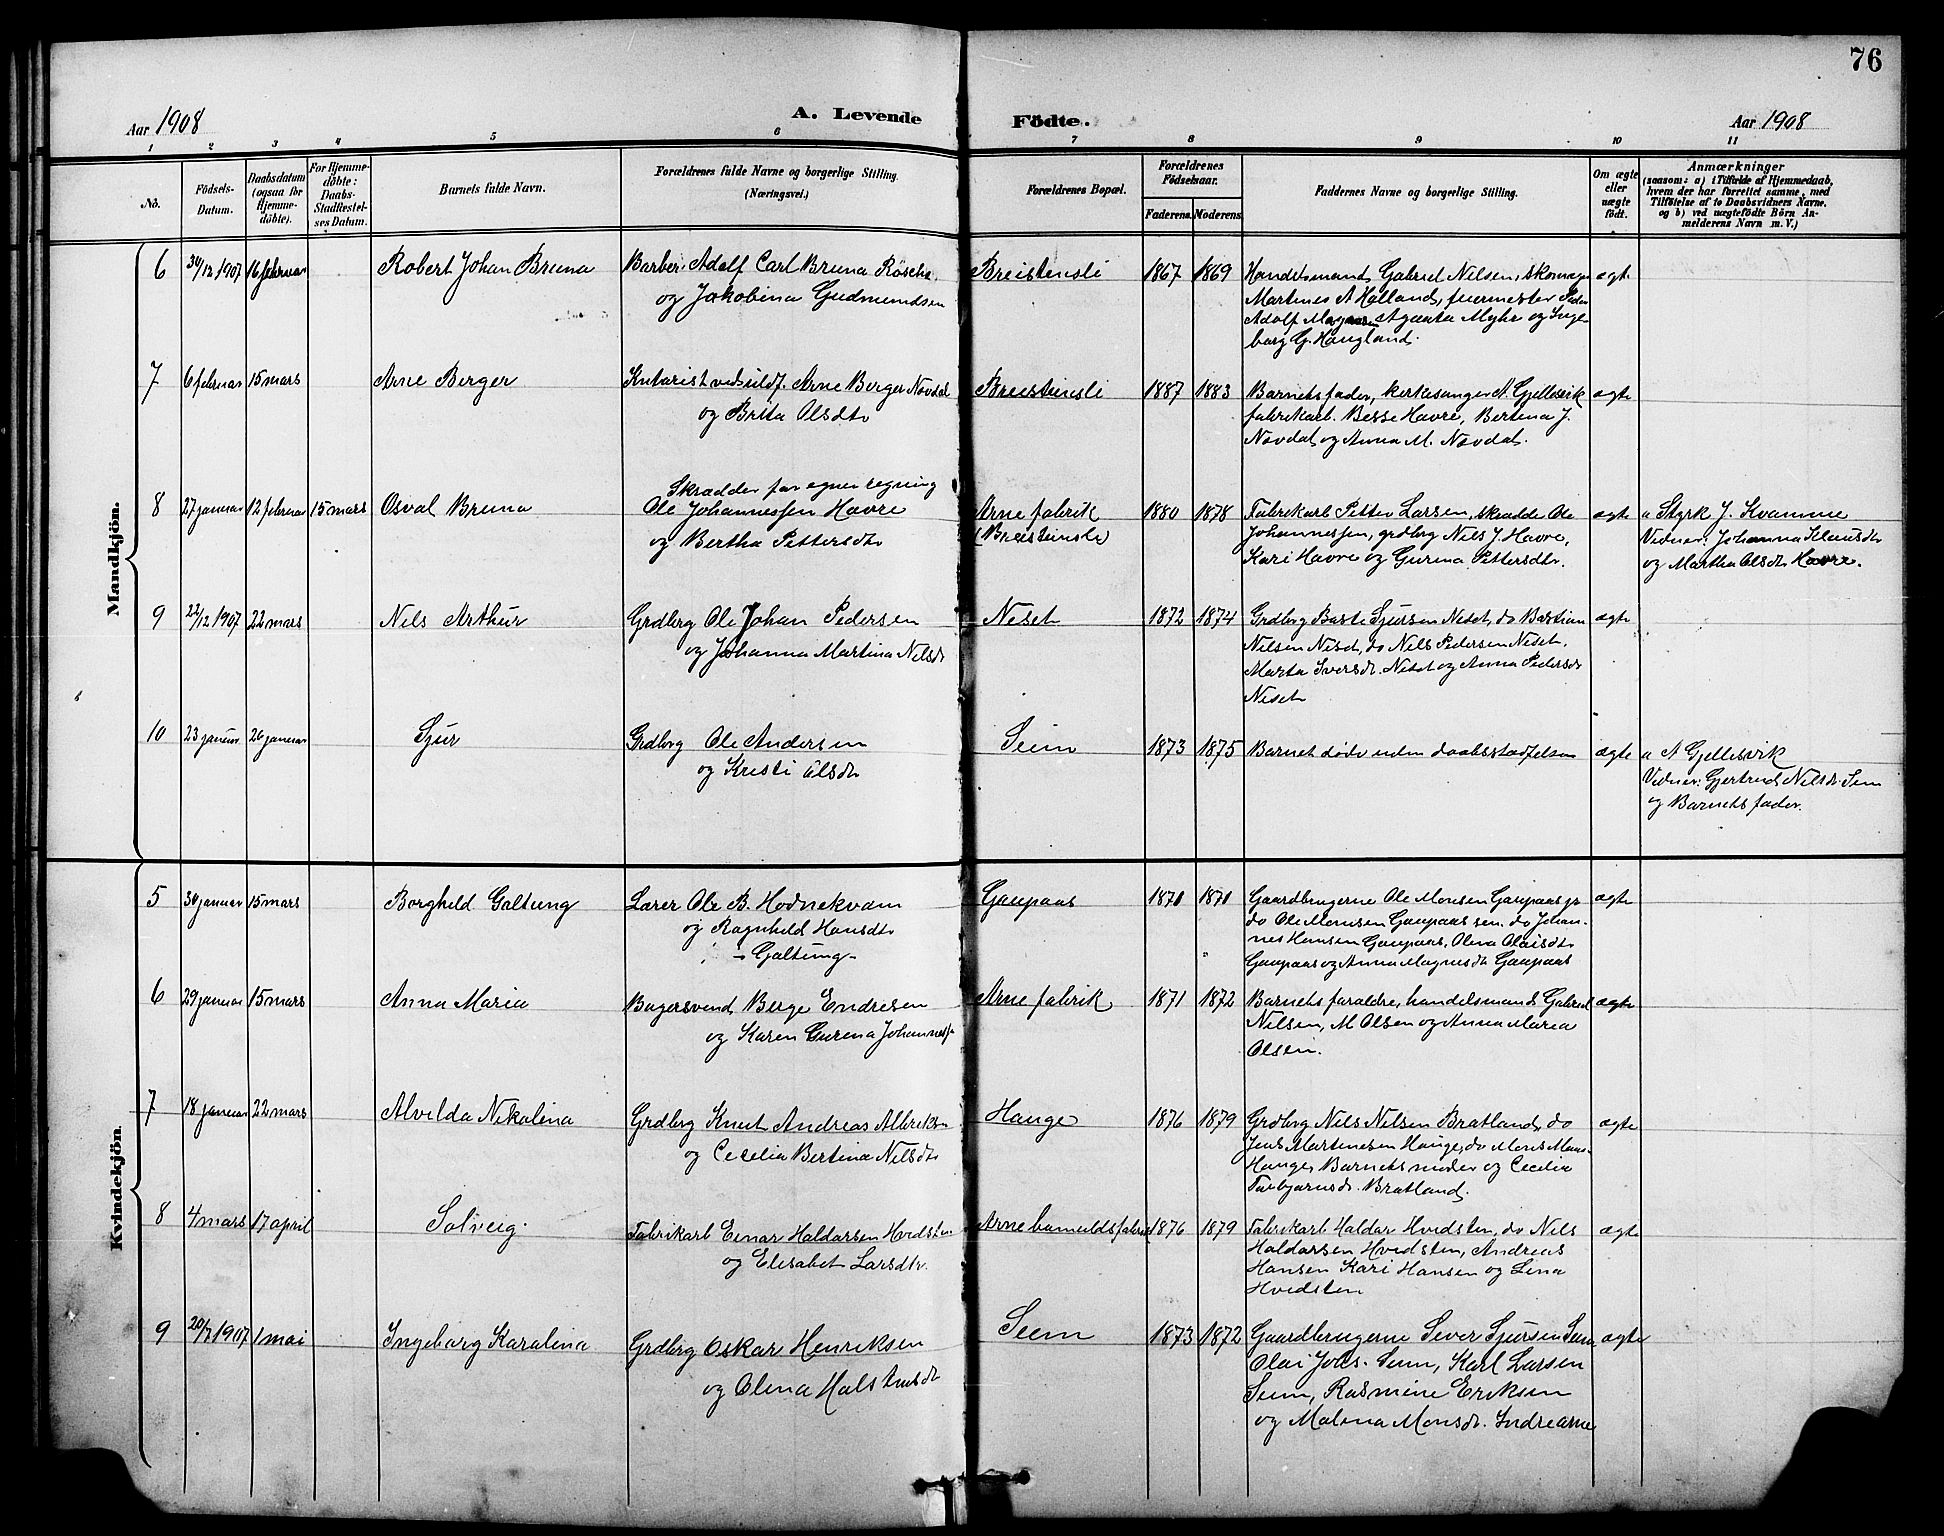 76
Aar 1908
A. Levende
Födte.
Aar 1908
1 2 3 4 5 6 7 8 9 10 11
No.
Födsels-
Datum.
Daabsdatum
(ogsaa for
Hjemme-
döbte).
For Hjemme-
döbte:
Daabs-
Stadfestel-
ses Datum.
Barnets fulde Navn.
Forældrenes fulde Navne og borgerlige Stilling.
(Næringsvei.)
Forældrenes Bopæl.
Forældrenes
Födselsaar.
Faderens. Moderens.
Faddernes Navne og borgerlige Stilling.
Om ægte
eller
uægte
födt.
Anmærkninger
(saasom: a) i Tilfælde af Hjemmedaab,
hvem der har forrettet samme, med
Tilföielse af to Daabsvidners Navne,
og b) ved uægtefödte Börn An-
melderens Navn m. V.)
Mandkjön.
6 30/12 1907 16 februar Robert Johan Bruna
Barber Adolf Carl Bruna Rösche
og Jakobina Gudmundsen
Breistensli 1867 1869
Handelsmand Gabriel Nilsen, skomager
Martines A Holland, fuermester Peder
Adolf Magnussen Agaata Myhr og Inge-
borg G. Haugland.
ægte
7 6 februar 15 mars Arne Berger
Arne Berger Novdal
og Brita Olsdtr
Breistensli 1887 1883
Barnets fader, kirkesanger A. Gjellesvik
fabrikarb. Besse Havre, Bertina J.
Novdal og Anna M. Novdal.
ægte
8 27 januar 12 februar 15 mars Osval Bruna
Skrædder for egner regning
Ole Johannessen Havre
og Bertha Pettersdtr
Arne fabrik
(Breistensli)
1880 1878
Fabrikarb Petter Larsen, skrædde Ole
Johannessen, grdbrg Nils J. Havre,
Kari Havre og Gurina Pettersdtr.
ægte
a Styrk J. Kvamme
Vidner: Johanna Klausdtr
og Martha Olsdtr Havre.
9 22/12 1907 22 mars Nils Arthur
Grdbrg Ole Johan Pedersen
og Johanna Martina Nilsdtr
Neset 1872 1874
Grdbrg Baste Sjursen Neset, do Bastian
Nilsen Neset, do Nils Pedersen Neset.
Marta Iversdtr. Neset og Anna Pedersdtr
Neset
ægte
10 23 januar 26 januar Sjur
Grdbrg Ole Andersen
og Kristi Olsdtr
Seim 1873 1875
Barnet døde uden daabsstadfelsen
ægte
a A Gjellesvik
Vidner: Gjertrud Nilsdtr Seim
og Barnets fader.
Kvindekjön.
5 30 januar 15 mars Borghild Galtung
Lærer Ole B. Hodnekvam
og Ragnhild Hansdtr
- Galtung -
Gaupaas 1870 1870
Gaardbrugerne Ole Monsen Gaupaas jr
do Ole Monsen Gaupaas sen. do Johan-
nes Hansen Gaupaas, Olina Olaisdtr
Gaupaas og Anna Magnesdtr Gaupaas
ægte
6 29 januar 15 mars Anna Maria
Bagersvend Berge Endresen
og Karen Gurina Johannesdtr
Arne fabrik 1871 1872
Barnets foraldre, handelsmand Gabriel
Nilsen, M Olsen og Anna Maria
Olsen.
ægte
7 18 januar 22 mars Alvilda Nikolina
Grdbrg Knut Andreas Albriktsen
og Cecilia Bertina Nilsdtr
Hauge 1876 1879
Grdbrg Nils Nilsen Bratland, do
Jens Martinesen Hauge, do Mons Mons.
Hauge, Barnets moder og Cecilia
Torbjørnsdtr. Bratland.
ægte
8 4 mars 17 april Solveig
Fabrikarb Einar Haldorsen Hvidsten
og Elisabet Larsdtr.
Arne bomuldsfabrik 1876 1879
Fabrikarb Haldor Hvidsten, do Nils
Haldorsen Hvidsten, Andreas
Hansen Kari Hansen og Lina
Hvidsten
ægte
9 1907 1 mai Ingeborg Karolina
Grdbrg Oskar Henriksen
og Olina Halstensdtr
Seim 1873 1872
Gaardbrugerne Sever Sjursen Seim
Olai Johs. Seim, Karl Larsen
Seim, Rasmine Eriksen
og Malina Monsdtr. Indrearne
ægte